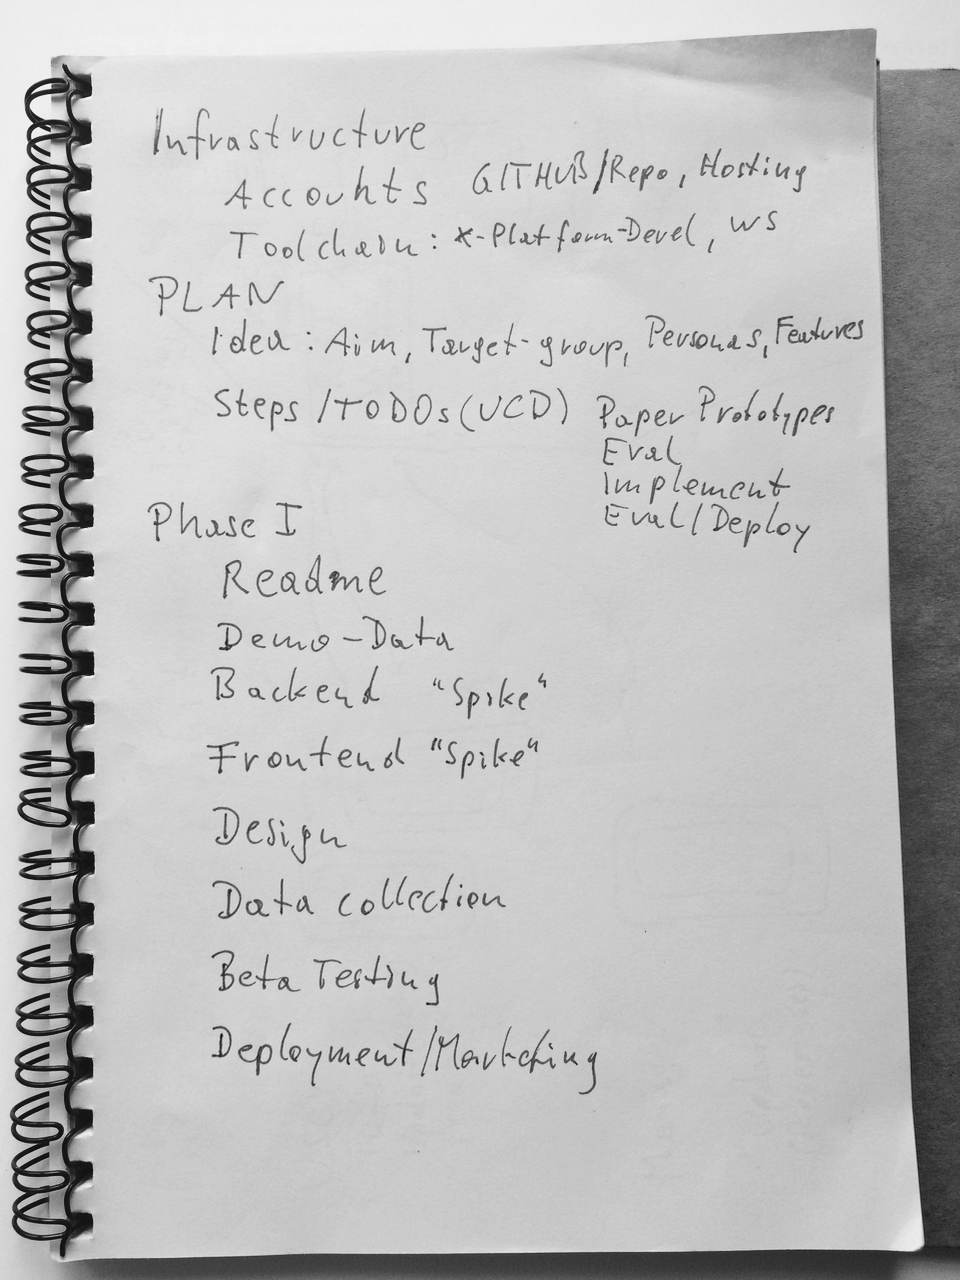 Infrastructure
Accounts GITHUB/Repo, Hosting
Toolchain: X-Platform-Devel, WS
PLAN
Idea: Aim, Target-group, Personas, Features
Steps/TODOs (UCD) Paper Prototypes
Eval
Implement
Eval/Deploy
Phase I
Readme
Demo-Data
Backend "Spike"
Frontend "Spike"
Design
Data collection
Beta Testing
Deployment/Marketing